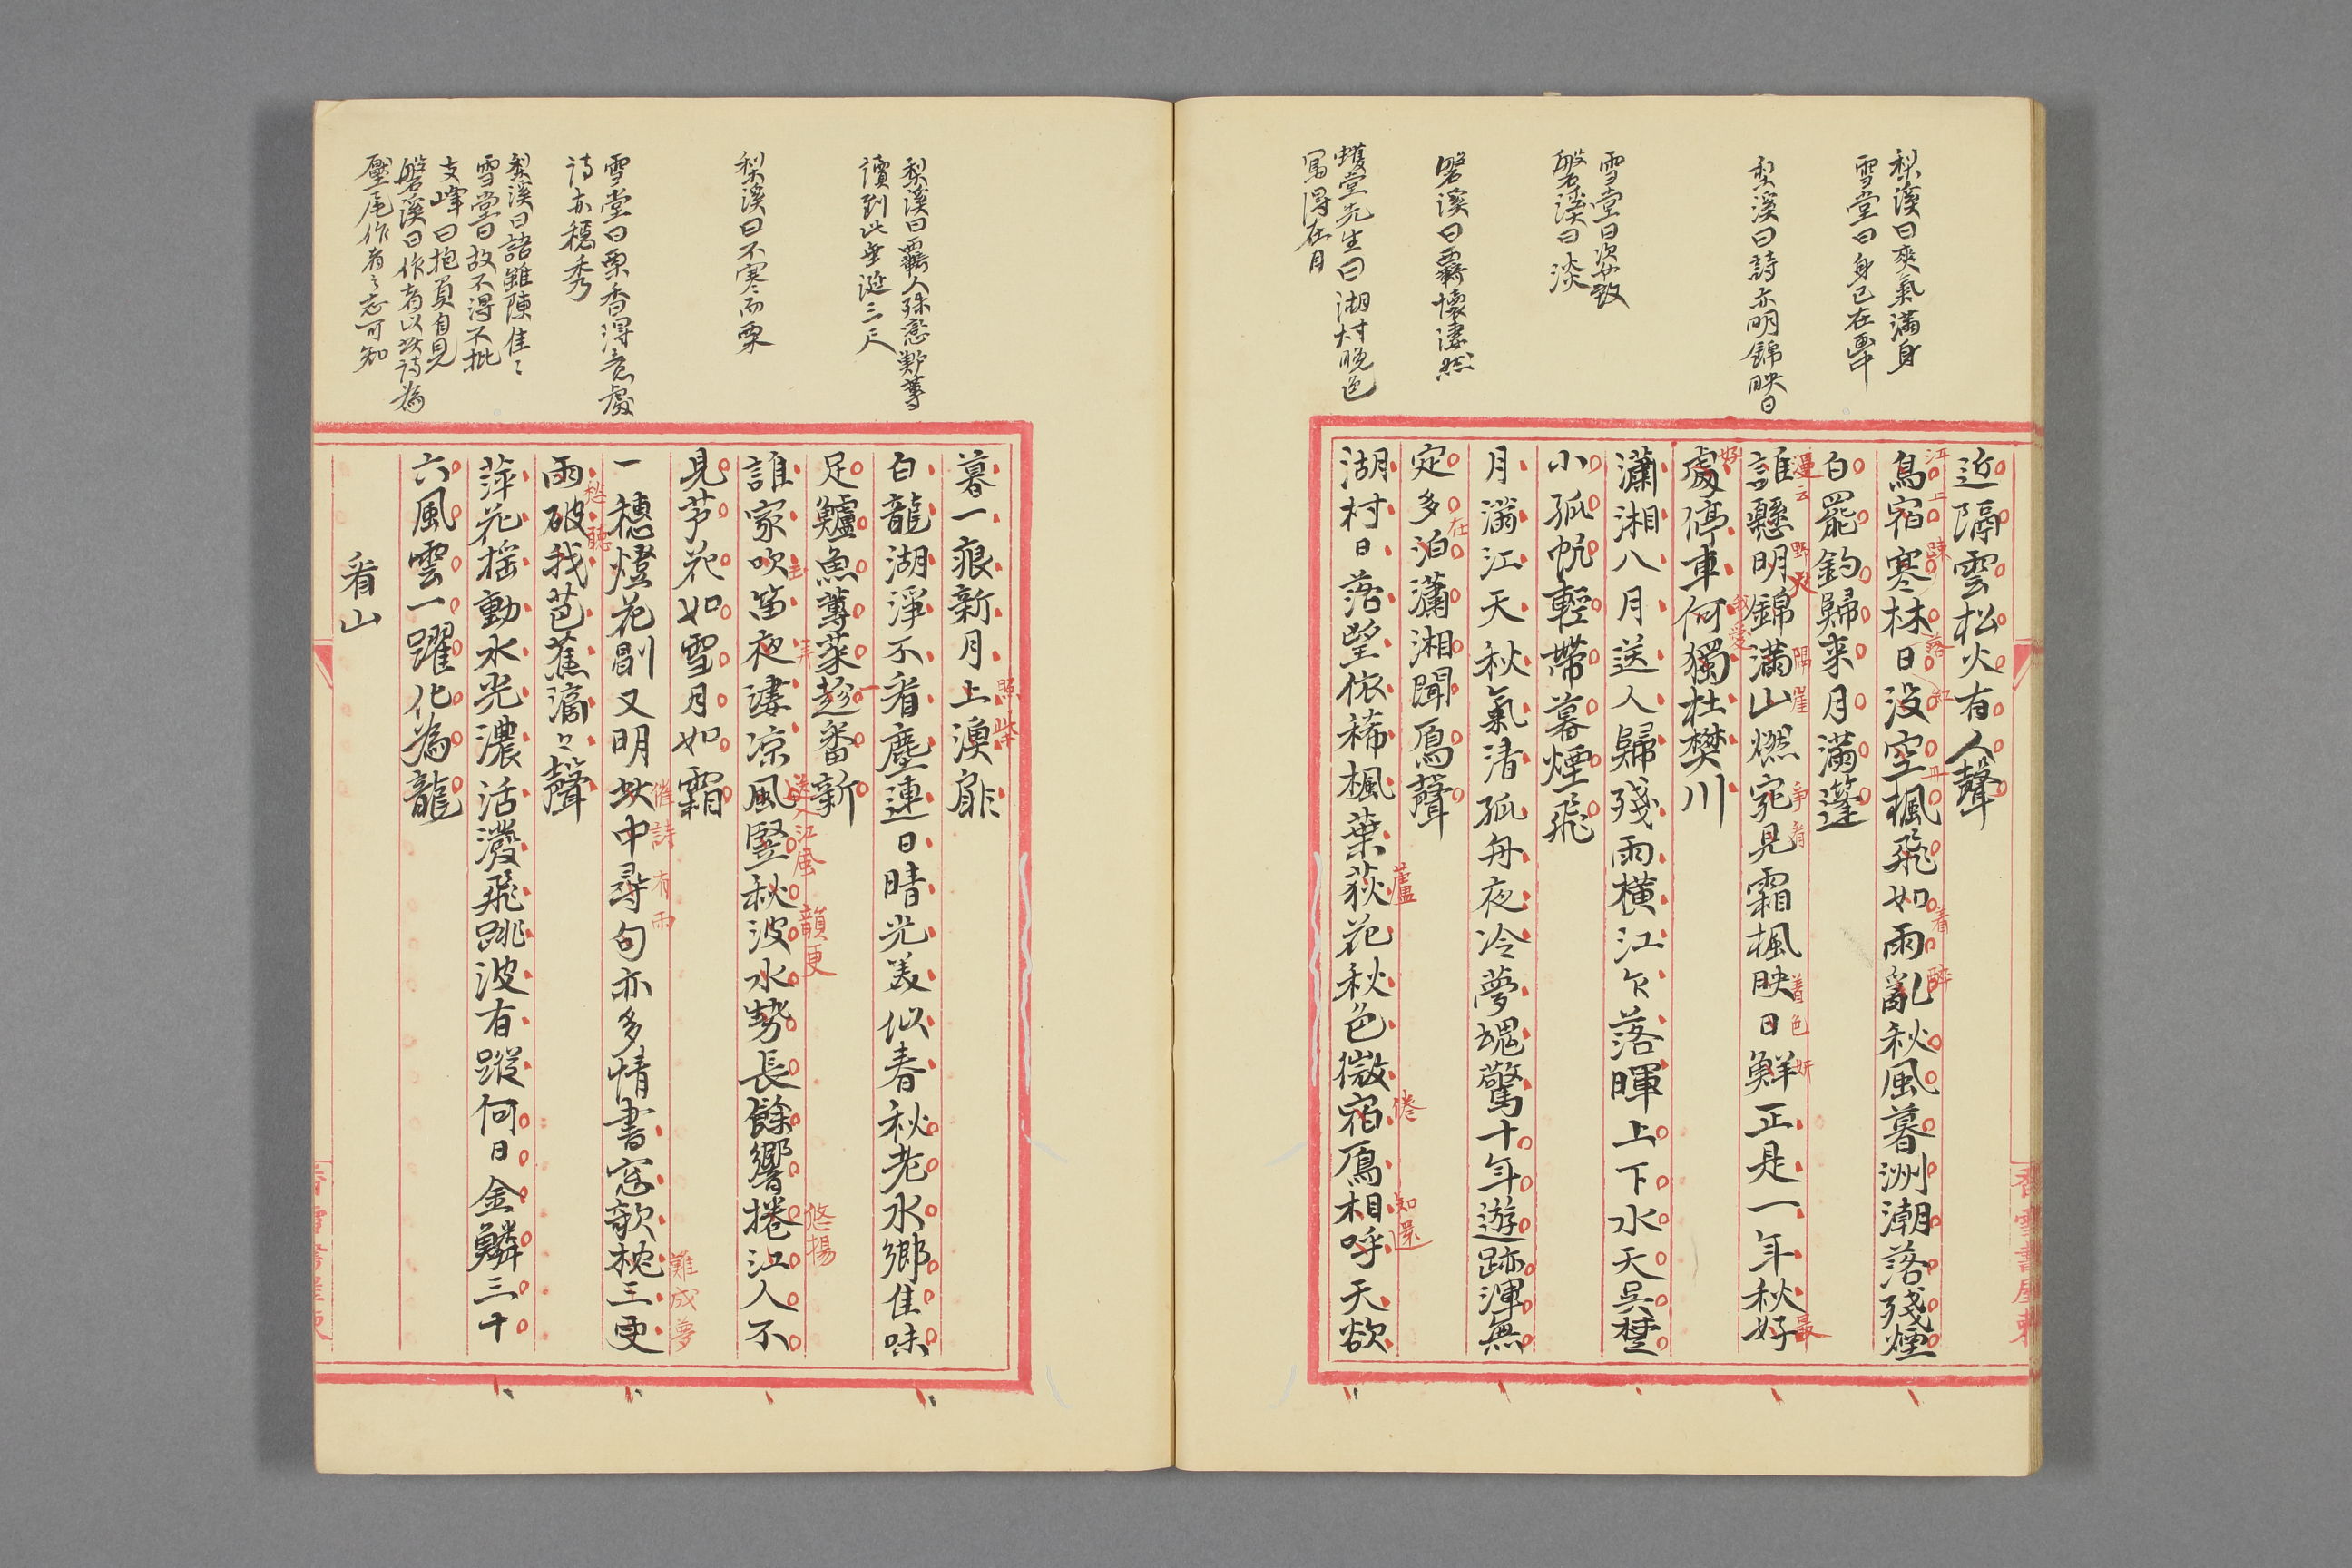 梨溪曰爽氣滿身
雪堂曰身已在画中
梨溪曰詩亦明錦映日
雪堂曰次女敦
磐溪曰淡
磐溪曰羈懷淒然
雙堂先生曰湖村晚色
寫得在月
近隔雲松火有人聲
鳥宿寒林日没空楓飛如雨亂秋風暮洲潮落殘煙
白罷釣歸来月滿篷
誰懸明錦滿山燃宛見霜楓映日鮮正是一年秋好
處停車何獨杜樊川
瀟湘八月送人歸殘雨橫江欠落暉上下水天吳楚
小孤帆輕帶暮煙飛
月滿江天秋氣清孤舟夜冷夢魂驚十年遊跡渾無
定多泊瀟湘聞鴈聲
湖村日落望依稀楓葉荻花秋色微宿鴈相呼天欲
漫云
野天
隔崖
爭看
着色
妍
最
好
我愛
在
蘆
倦
知還
香雪書屋
梨溪曰羈人殊戀鄉蓴
讀到此垂涎三尺
梨溪曰不寒而栗
雪堂曰栗香得意處
詩亦穩秀
梨溪曰語雖陳佳々
雪堂曰故不得不批
支峰曰抱負自見
磐溪曰作者以此詩為
壓尾作者之志可知
暮一痕新月上漁扉
白龍湖淨不看塵連日晴光美似春秋老水鄉佳味
足鱸魚蓴菜趁番新
誰家吹笛夜淒凉風竪秋波水勢長餘響捲江人不
見芦花如雪月如霜
一穗燈花剔又明此中尋句亦多情書窓欹枕三更
雨破我芭蕉滴々聲
萍花揺動水光濃活潑飛跳波有蹤何日金鱗三十
六風雲一躍化為龍
看山
照柴
弄
江風
韻更
悠揚
催詩
有雨
難成夢
愁聽